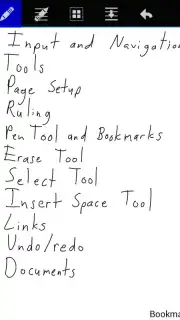 Input and Navigation
Tools
Page Setup
Ruling
Pen Tool and Bookmarks
Erase Tool
Select Tool
Insert Space Tool
Links
Undo/redo
Documents
Bookma